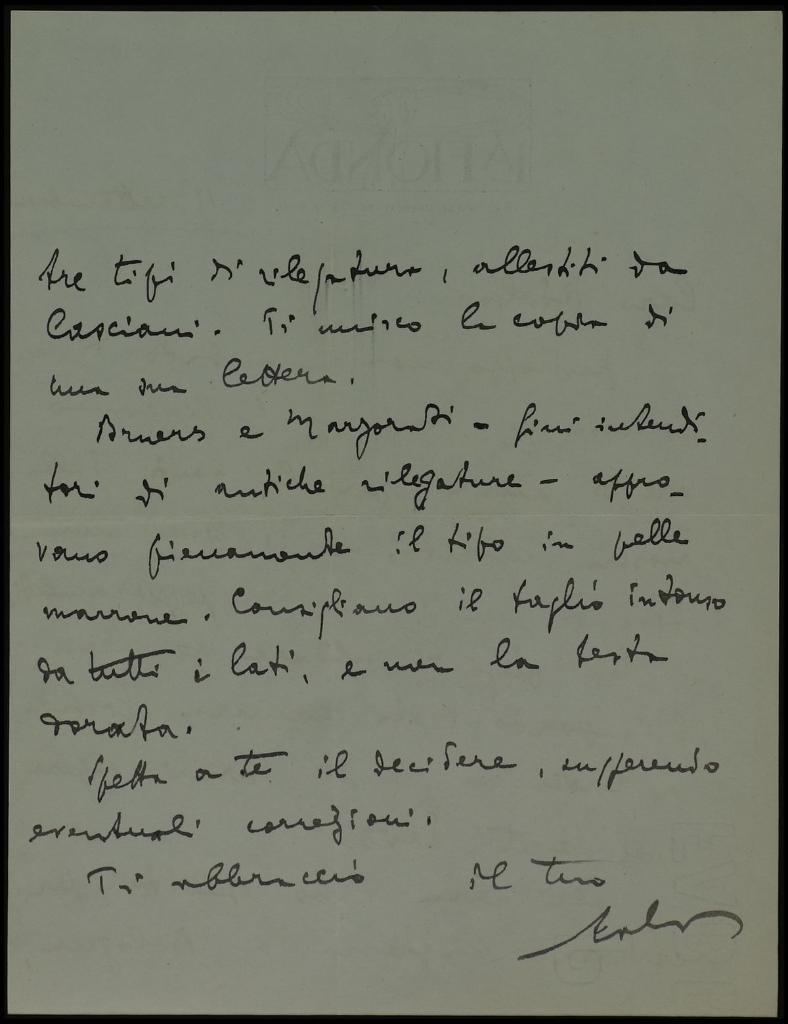 tre tipi di rilegatura, allestiti da
Casciani. Ti unisco la copia di
una sua lettera.
Bruers e Marzorati - fini intendi-
tori di antiche rilegature - appro-
vano pienamente il tipo in pelle
marrone. Consigliano il taglio intonso
da tutti i lati, e non la testa
dorata.
Spetta a te il decidere, suggerendo
eventuali correzioni.
Ti abbraccio il tuo